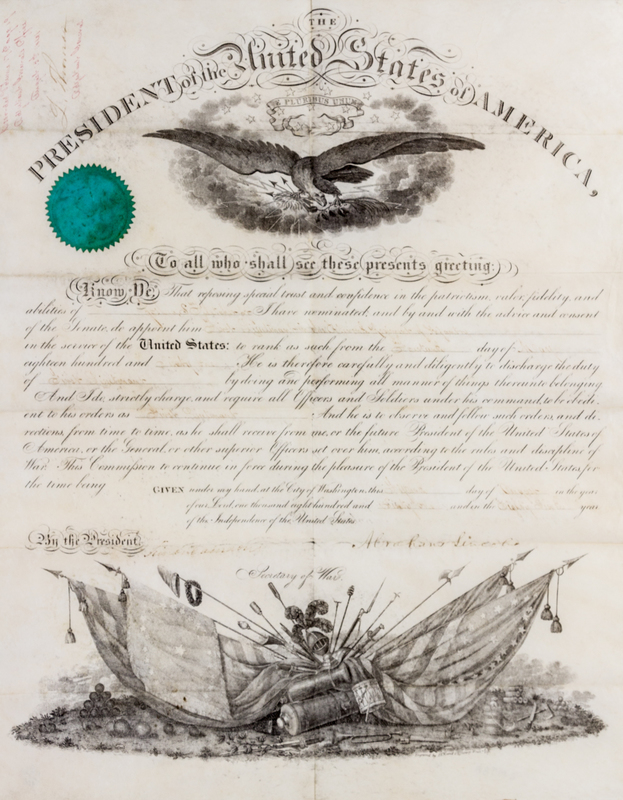 THE
United States
PRESIDENT of the of AMERICA,
E PLURIBUS UNUM
To all who shall see these presents greeting:
Know Ye, That reposing special trust and confidence in the patriotism, valor, fidelity, and
abilities of I have nominated, and by and with the advice and consent
of the Senate, do appoint him
in the service of the United States: to rank as such from the day of
eighteen hundred and He is therefore carefully and diligently to discharge the duty
of by doing and performing all manner of things thereunto belonging
And I do, strictly charge, and require all Officers and Soldiers under his command, to be obedi-
ent to his orders as And he is to observe and follow such orders, and di-
rections, from time to time, as he shall receive from me, or the future President of the United States of
America, or the General, or other superior Officers set over him, according to the rules and discipline of
War. This Commission to continue in force during the pleasure of the President of the United States, for
the time being
GIVEN under my hand, at the City of Washington, this day of in the year
of our Lord, one thousand eight hundred and and in the year
of the Independence of the United States
By the President,
Abraham Lincoln
Secretary of War.